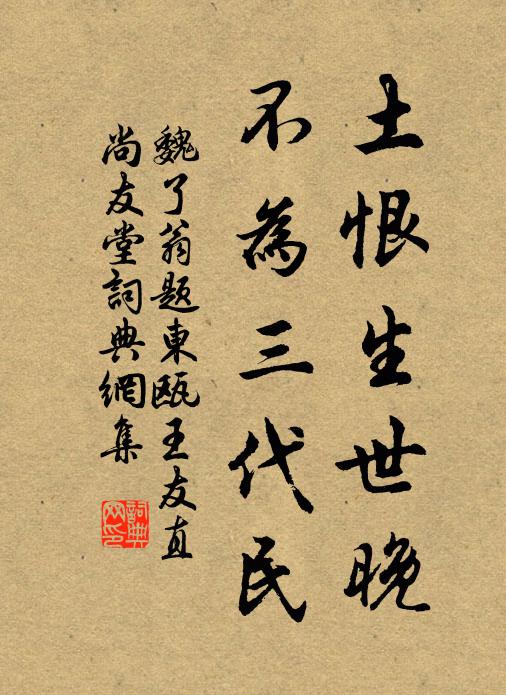 土恨生世晚
不為三代民
魏了翁題東甌王友直
尚友堂詞典網集
詞典
网印